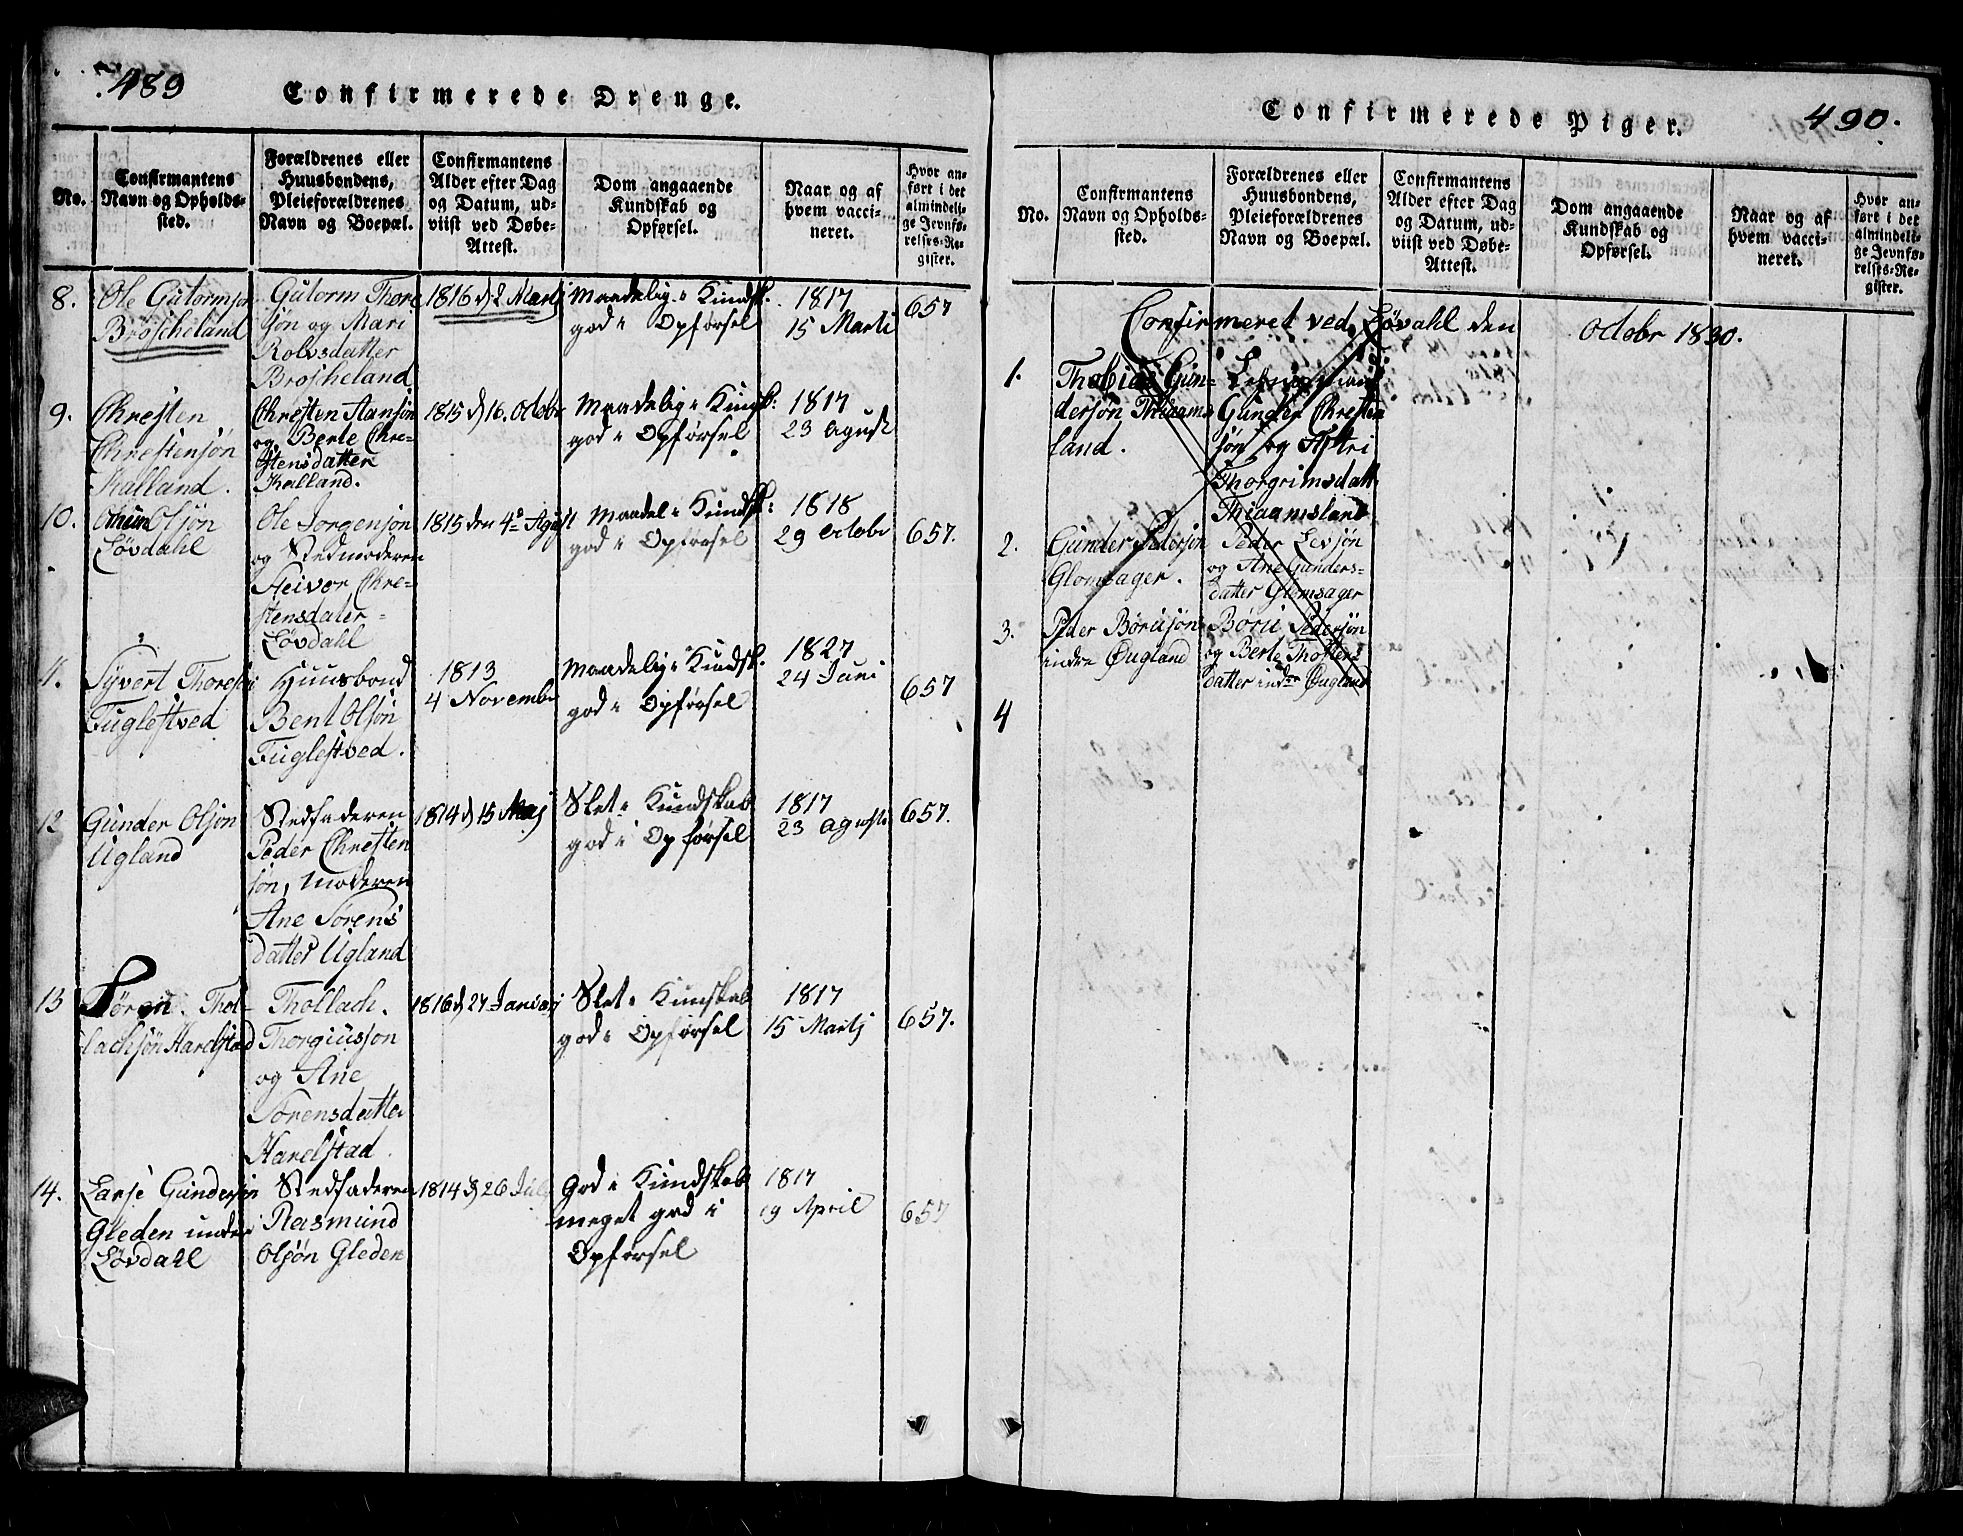 489
Confirmerede Drenge.
No.
Confirmantens
Navn og Opholds-
sted.
Forældrenes eller
Huusbondens,
Pleieforældrenes
Navn og Boepæl.
Confirmantens
Alder efter Dag
og Datum, ud-
viist ved Døbe-
Attest.
Dom angaaende
Kundskab og
Opførsel.
Naar og af
hvem vacci-
neret.
Hvor an-
ført i det
almindeli-
ge Jevnfø-
relses-Re-
gister.
8.
Ole Gutormsøn
Broscheland
Gutorm Thore
søn og Mari
Rolvsdatter
Broscheland
1816 d 2 Martj
Maadelig i Kundsk.
god i Opførsel
1817
15 Marti
657
9.
Chresten
Chrestensøn
Kalland.
Chresten Aansøn
og Berte Chre-
stensdatter
Kalland.
1815 d 16. Octobr
Maadelig i Kundsk:
god i Opførsel
1817
23 Agust
10.
Olsøn
Løvdahl
Ole Jorgensøn
og Stedmoderen
Aeivor Chre-
stensdater
Løvdahl
1815 den 4de Agust
Maadel i Kundsk:
god i Opførsel
1818
29 octobr
657.
11.
Syvert Thoresøn
Fuglestved
Huusbond
Bent Olsøn
Fuglestved.
1813
4 Novembr
Maadelig i Kundsk.
god i Opførsel
1827
24 Juni
657
12
Gunder Olsøn
Ugland
Stedfaderen
Peder Chresten
søn, Moderen
Ane Sørens
datter Ugland
1814 d 15 Maj
Slet i Kundskab
god i Opførsel
1817
23 Agusti
657.
13
Søren Thol-
lachsøn Harelstad
Thollach.
Thorgiussøn
og Ane
Sørensdatter
Harelstad.
1816 d 27 Januarj
Slet i Kunskab
god i Opførsel
1817
15 Martj
657.
14.
Larse Gundersøn
Gleden under
Løvdahl
Stedfaderen
Rasmund
Olsøn Gleden
1814 d 26 Juli
God i Kundskab
meget god i
Opførsel
1817
19 April
657
Confirmerede Piger.
490.
No.
Confirmantens
Navn og Opholds-
sted.
Forældrenes eller
Huusbondens,
Pleieforældrenes
Navn og Boepæl.
Confirmantens
Alder efter Dag
og Datum, ud-
viist ved Døbe-
Attest.
Dom angaaende
Kundskab og
Opførsel.
Naar og af
hvem vacci-
neret.
Hvor an-
ført i det
almindeli-
ge Jevnfø-
relses-Re-
gister.
Confirmeret ved Løvdahl den octobr 1830.
1.
Thobias Gun-
dersøn Thiaams
land.
Gunder Chresten
søn og Astri
Thorgrimsdatt.
Thiaamsland
2.
Gunder Pedersøn
Glomsager.
Peder Levsøn
og Ane Gunders-
datter Glomsager
3.
Peder Børusøn
indre Øugland
Børu Pedersøn
og Berte Thosters
datter indre Øugland
4